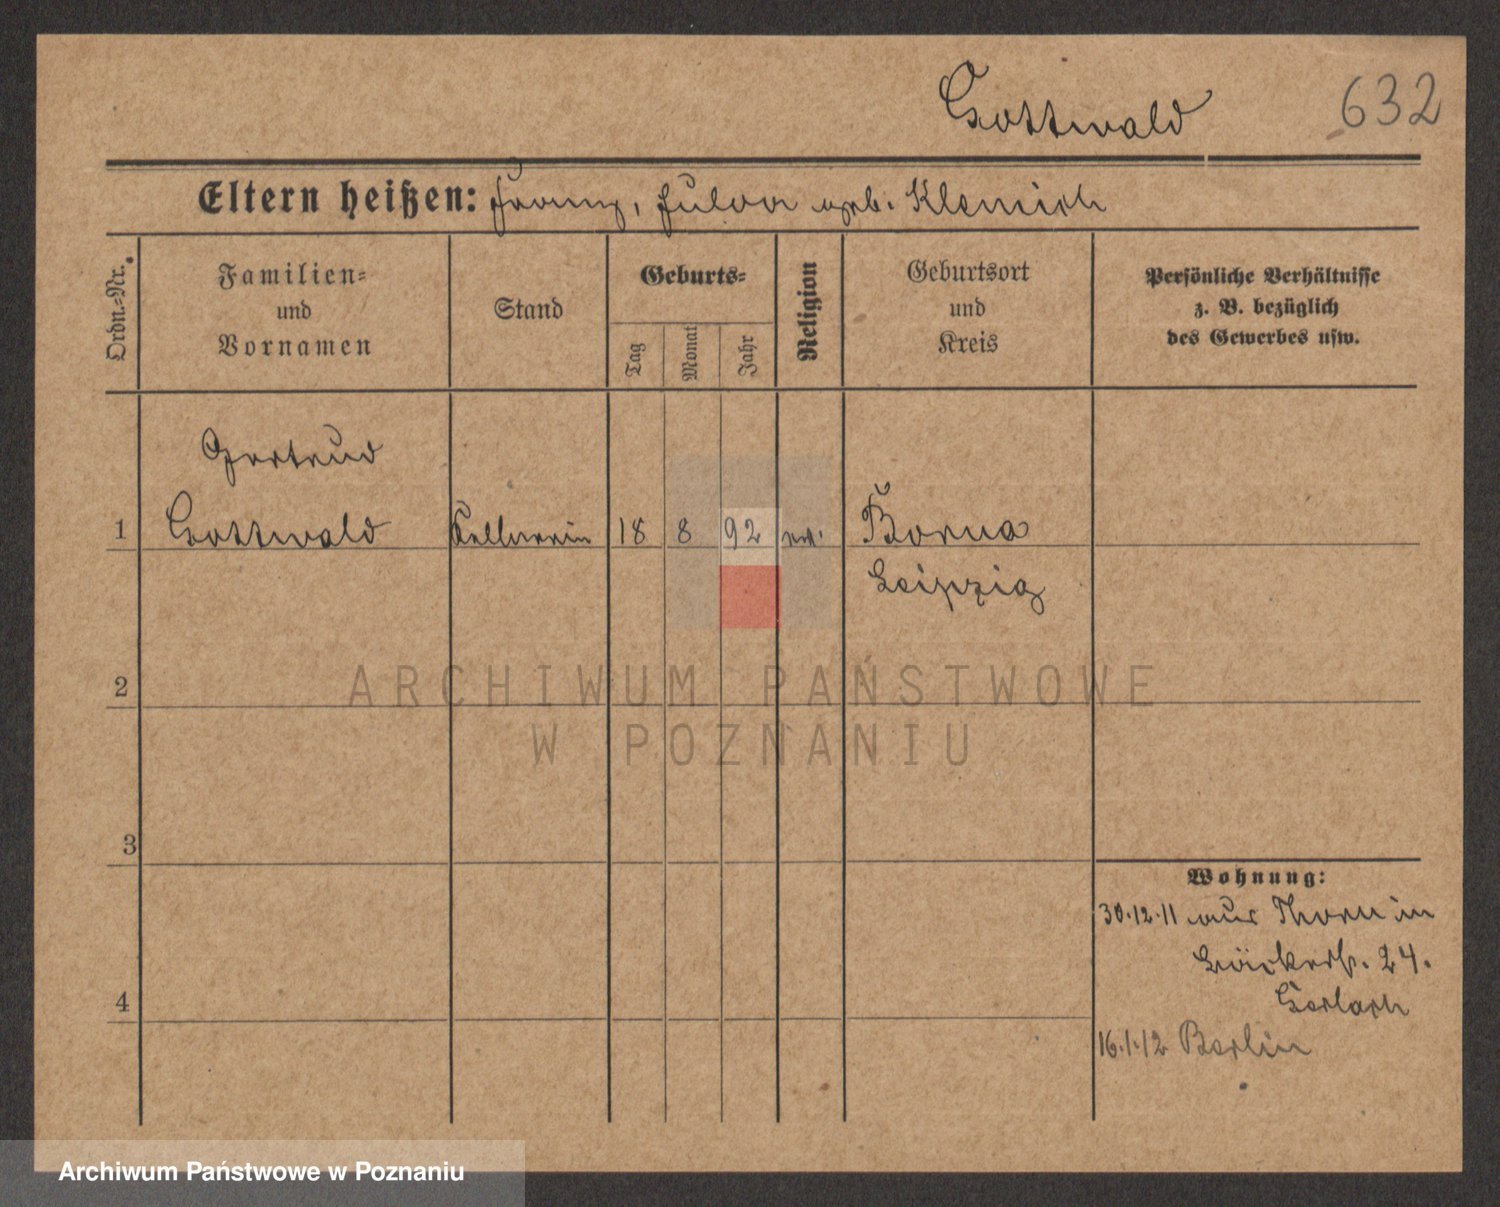 Gottwald 632
Eltern heißen: Franz, Julia geb. Klemich
Ordn.-Nr.
Familien-
und
Vornamen
Stand
Geburts-
Tag
Monat
Jahr
Religion
Geburtsort
und
Kreis
Persönliche Verhältnisse
z. B. bezüglich
des Gewerbes usw.
Gertrud
1 Gottwald Kellnerin 18 8 92 Borna
Leipzig
2
ARCHIWUM PAŃSTWOWE
W POZNANIU
3
Wohnung:
30.12.11 aus Thorn in
Bäckerstr. 24.
Gerlach
4
16.1.12 Berlin
Archiwum Państwowe w Poznaniu